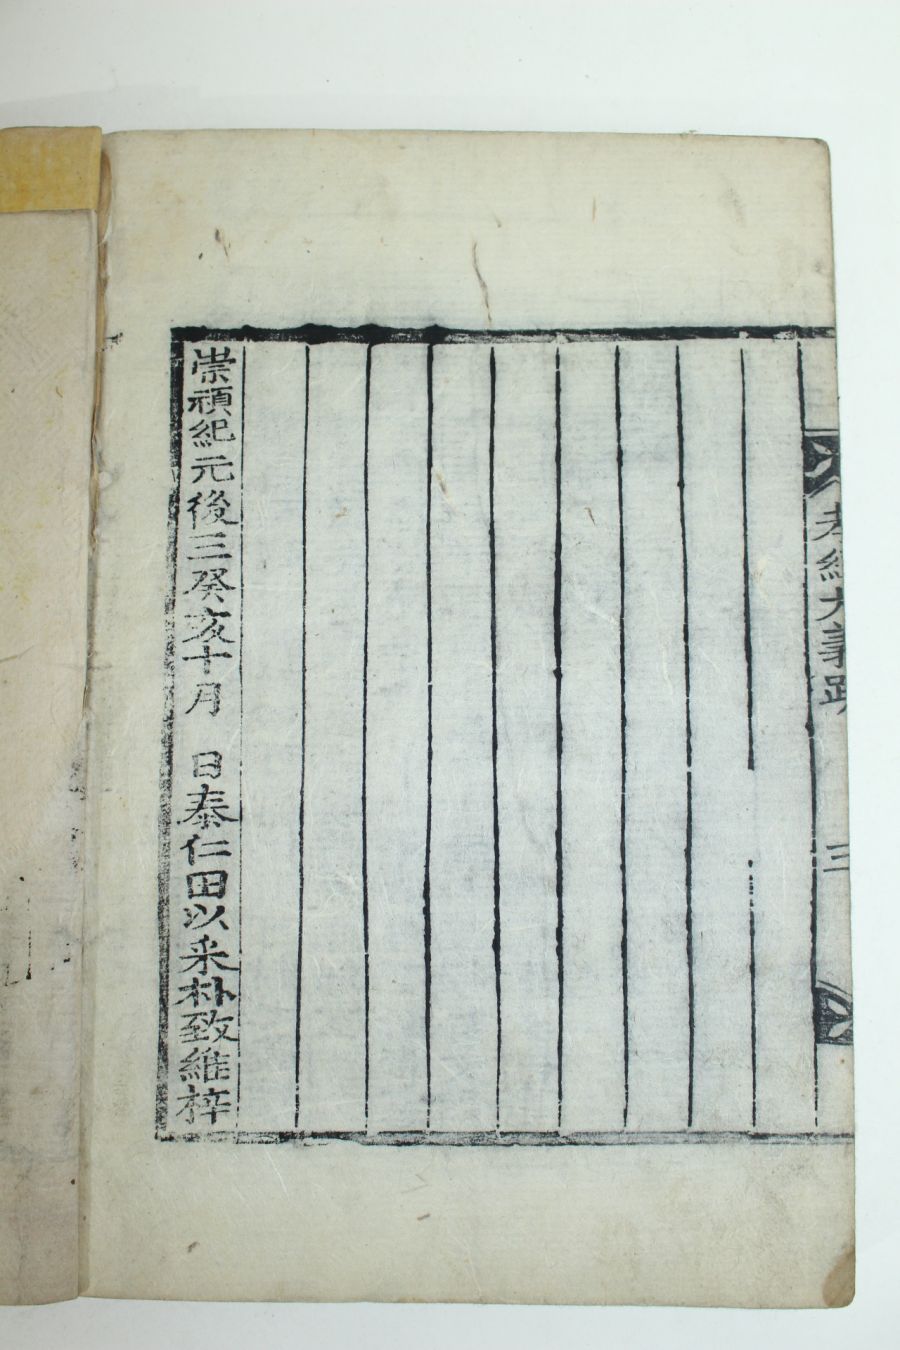 孝經大義跋
三
崇禎紀元後三癸亥十月 日泰仁田以釆朴致維梓